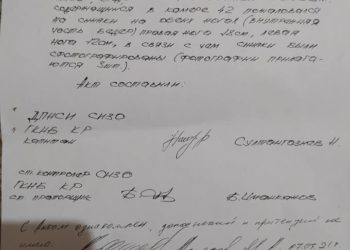 содержащийся в камере 42 пожаловался
на синяки на обеих ногах (внутренняя
часть бедер) правая нога 18см, левая
нога 12см, в связи с чем синяки были
сфотографированы (фотографии прилага-
ются 3шт).
Акт составили:
ДПНСИ СИЗО
ГКНБ КР
капитан Султангазиев Н.
ст. контролер СИЗО
ГКНБ КР
ст прапорщик Б. Имашканов
С актом ознакомлен, дополнений и претензий не
имею.